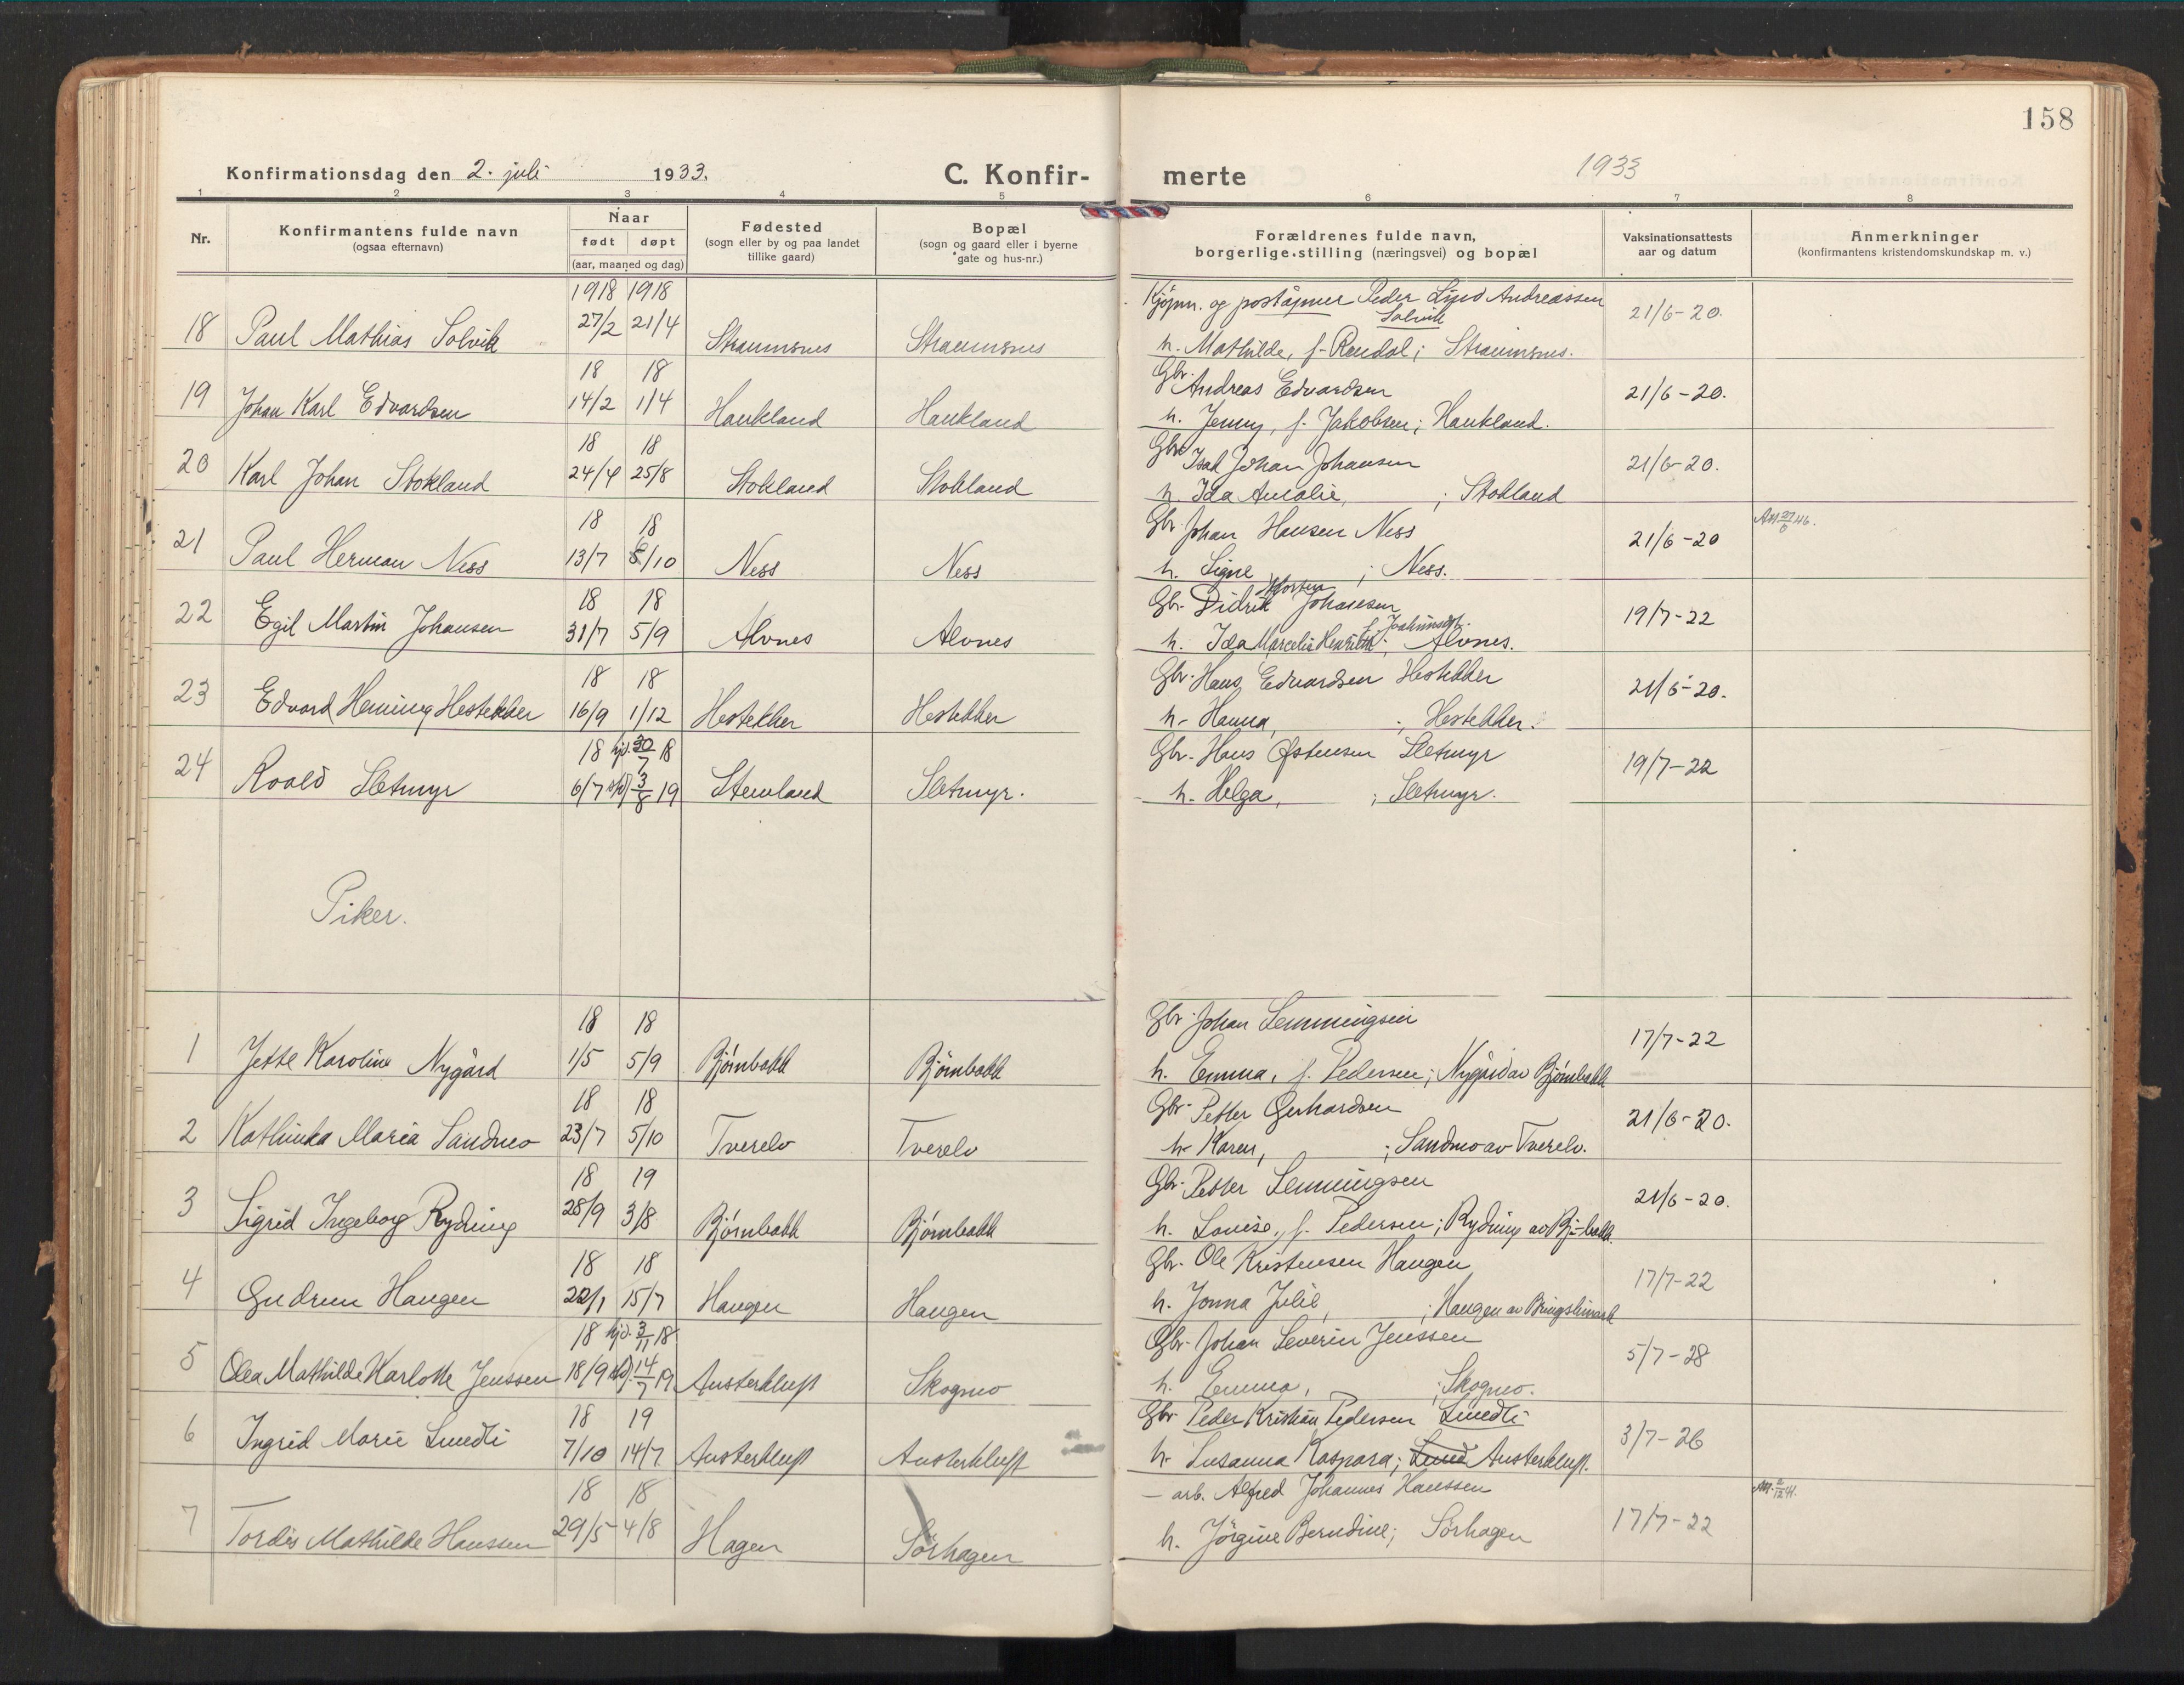 158
Konfirmationsdag den 2. juli 1933.
C. Konfir-
merte
1933
1 2 3 4 5 6 7 8
Nr.
Konfirmantens fulde navn
(ogsaa efternavn)
Naar
født døpt
(aar, maaned og dag)
Fødested
(sogn eller by og paa landet
tillike gaard)
Bopæl
(sogn og gaard eller i byerne
gate og hus-nr.)
Forældrenes fulde navn,
borgerlige stilling (næringsvei) og bopæl
Vaksinationsattests
aar og datum
Anmerkninger
(konfirmantens kristendomskundskap m. v.)
1918 1918
18 Paul Mathias Solvik 27/2 21/4 Straumsnes Straumsnes
Kjøpm. og poståpner Peder Lind Andreassen
Solvik
h. Mathilde, f. Rendal; Straumsnes.
21/6-20.
18 18
19 Johan Karl Edvardsen 14/2 1/4 Haukland Haukland
Gbr. Andreas Edvardsen
h. Jenny, f. Jakobsen; Haukland.
21/6-20.
18 18
20 Karl Johan Stokland 24/4 25/8 Stokland Stokland
Gbr. Isak Johan Johansen
h. Ida Amalie, ; Stokland
21/6-20.
18 18
21 Paul Herman Ness 13/7 6/10 Ness Ness
Gbr. Johan Hansen Ness
h. Signe ; Ness.
21/6-20
18 18
22 Egil Martin Johansen 31/7 5/9 Alvnes Alvnes
Gbr. Didrik Morten Johansen
h. Ida Marcelie Henriette f. Joakimsdtr.; Alvnes.
19/7-22
18 18
23 Edvard Heming Hestekker 16/9 1/12 Hestekker Hestekker
Gbr. Hans Edvardsen Hestekker
h. Hanna, ; Hestekker.
21/6-20.
18 hjd. 30/7 18
24 Roald Sletmyr 6/7 stf. 3/8 19 Stemland Sletmyr.
Gbr. Hans Østensen Sletmyr
h. Helga, ; Sletmyr.
19/7-22
Piker.
18 18
1 Jette Karoline Nygård 1/5 5/9 Bjørnbakk Bjørnbakk
Gbr. Johan Lemmingsen
h. Emma, f. Pedersen; Nygård av Bjørnbakk
17/7-22
18 18
2 Kathinka Maria Sandmo 23/7 5/10 Tverelv Tverelv
Gbr. Petter Gerhardsen
h. Karen, ; Sandmo av Tverelv.
21/6-20.
18 19
3 Sigrid Ingeborg Rydning 28/9 3/8 Bjørnbakk Bjørnbakk
Gbr. Petter Lemmingsen
h. Louise, f. Pedersen; Rydning av Bj-bakk.
21/6-20.
18 18
4 Gudrun Haugen 22/1 15/7 Haugen Haugen
Gbr. Ole Kristensen Haugen
h. Jonna Julie, ; Haugen av Bringslimark
17/7-22
18 hjd. 3/11 18
5 Olea Mathilde Karlotte Jenssen 18/9 stf. 14/7 19 Austerkluft Skogmo
Gbr. Johan Severin Jenssen
h. Emma, ; Skogmo.
5/7-28
18 19
6 Ingrid Marie Lundli 7/10 14/7 Austerkluft Austerkluft
Gbr. Peder Kristian Pedersen Lundli
h. Susanna Kaspara; Lund Austerkluft.
3/7-26
18 18
7 Tordis Mathilde Hanssen 29/5 4/8 Hagen Sørhagen
arb. Alfred Johannes Hanssen
h. Jørgine Berndine; Sørhagen
17/7-22